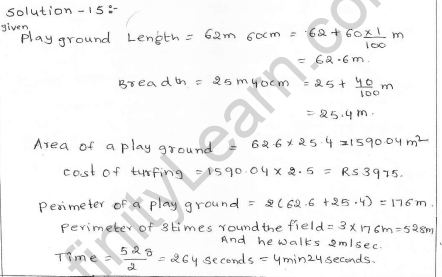 Solution-15:-
given
Play ground Length = 62m 60cm = 62 + 60 × 1/100 m
= 62.6m.
Breadth = 25m40cm = 25 + 40/100 m
= 25.4m.
Area of a play ground = 62.6 × 25.4 = 1590.04 m²
cost of turfing = 1590.04 × 2.5 = Rs 3975.
perimeter of a play ground = 2(62.6 + 25.4) = 176m.
perimeter of 3times round the field = 3 × 176m = 528m
And he walks 2m/sec.
Time = 528/2 = 264 seconds = 4min24seconds.
finityLearn.com